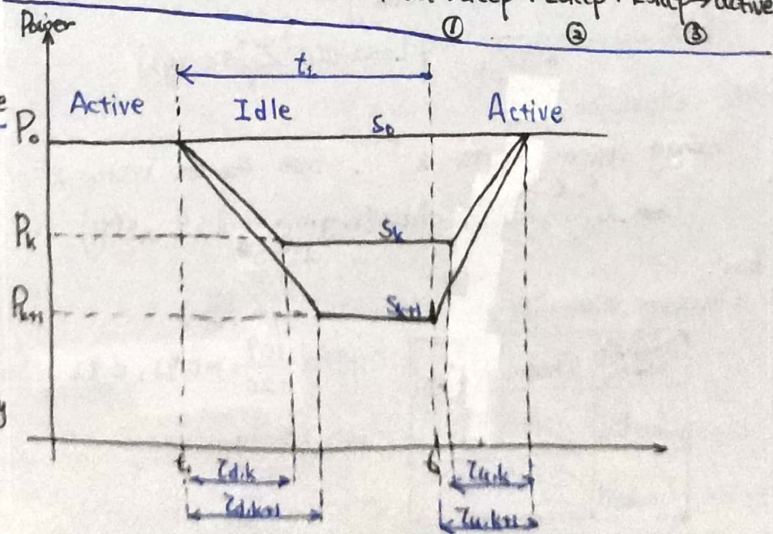 →active
① ② ③
Power
t₁
Active Idle Active
P₀ S₀
Pₖ Sₖ
Pₖ₊₁ Sₖ₊₁
t₁
τd,k τu,k
τd,k+1 τu,k+1